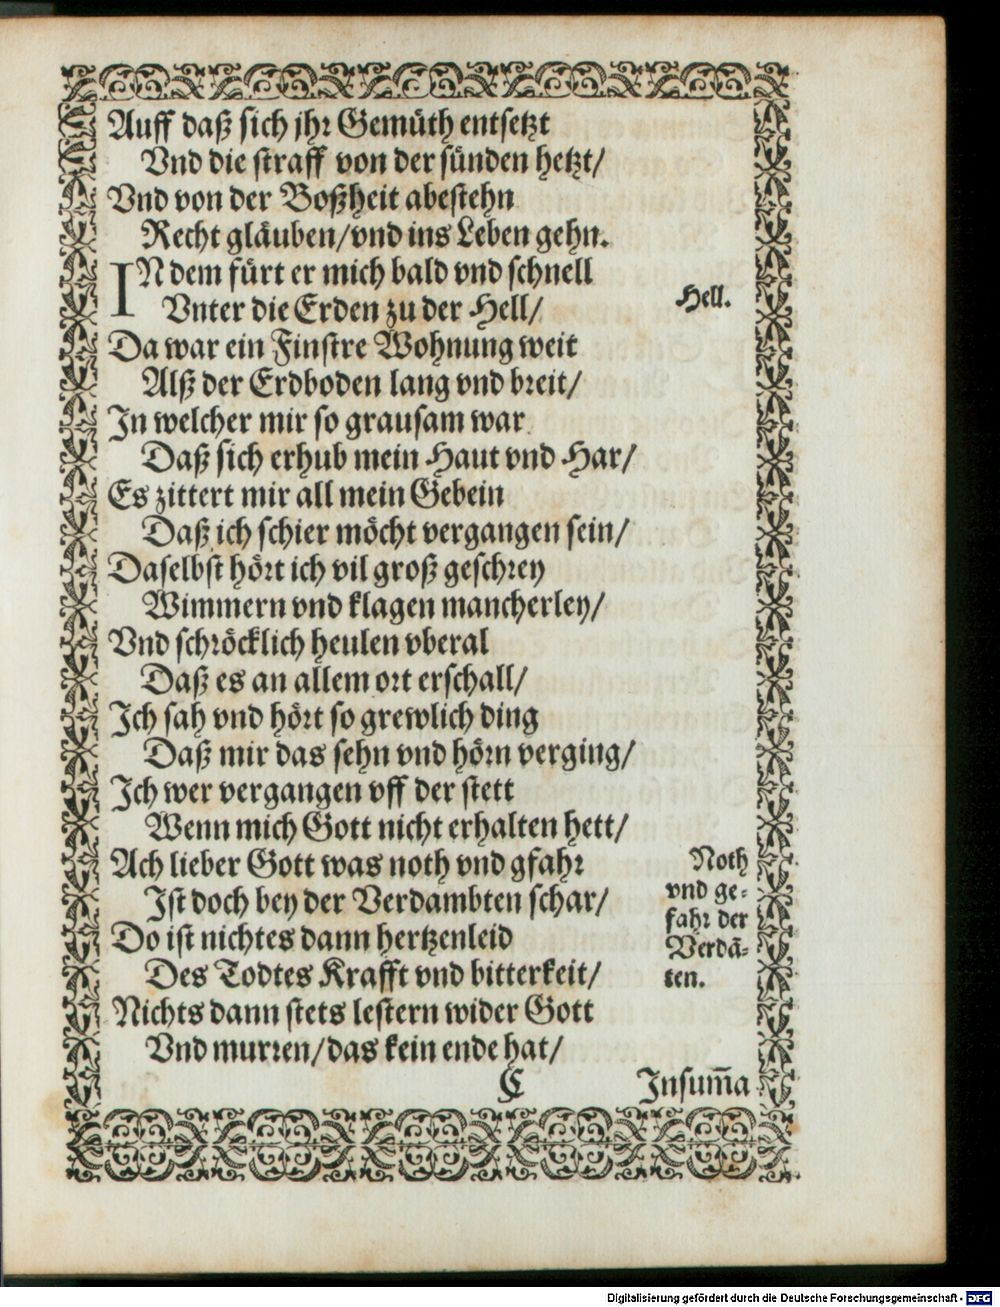 Auff daß sich jhr Gemüth entsetzt
Vnd die straff von der sünden hetzt/
Vnd von der Boßheit abestehn
Recht gläuben/vnd ins Leben gehn.
IN dem fürt er mich bald vnd schnell
Vnter die Erden zu der Hell/
Hell.
Da war ein Finstre Wohnung weit
Alß der Erdboden lang vnd breit/
In welcher mir so grausam war
Daß sich erhub mein Haut vnd Har/
Es zittert mir all mein Gebein
Daß ich schier möcht vergangen sein/
Daselbst hört ich vil groß geschrey
Wimmern vnd klagen mancherley/
Vnd schröcklich heulen vberal
Daß es an allem ort erschall/
Ich sah vnd hört so grewlich ding
Daß mir das sehn vnd hörn verging/
Ich wer vergangen vff der stett
Wenn mich Gott nicht erhalten hett/
Ach lieber Gott was noth vnd gfahr
Ist doch bey der Verdambten schar/
Do ist nichtes dann hertzenleid
Des Todtes Krafft vnd bitterkeit/
Nichts dann stets lestern wider Gott
Vnd murren/das kein ende hat/
Noth
vnd ge=
fahr der
Verdā=
ten.
C
Insum̄a
Digitalisierung gefördert durch die Deutsche Forschungsgemeinschaft - DFG